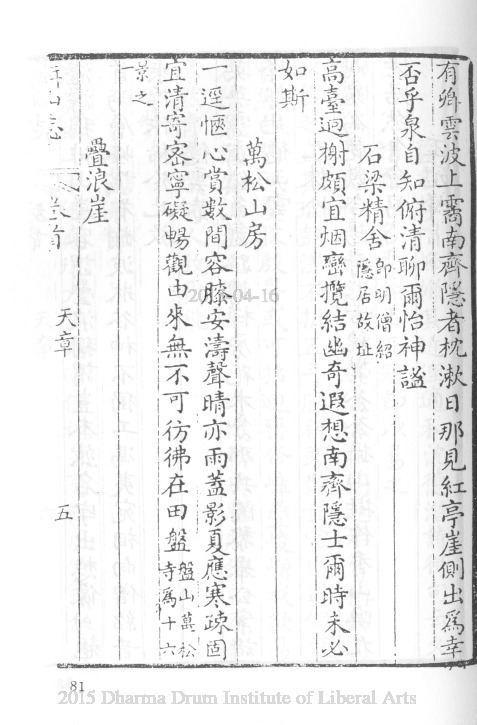 有卿雲波上霱南齊隱者枕漱日那見紅亭崖側出爲幸
否乎泉自知俯清聊爾怡神謐
石梁精舍即明僧紹隱居故址
高臺迥榭頗宜烟巒攬結幽奇遐想南齊隱士爾時未必
如斯
萬松山房
一逕愜心賞數間容膝安濤聲晴亦雨蓋影夏應寒疎固
宜清寄密寧礙暢觀由來無不可彷彿在田盤盤山萬松寺爲十六
景之一
疊浪崖
山志 卷首 天章 五
81
2015-04-16
2015 Dharma Drum Institute of Liberal Arts